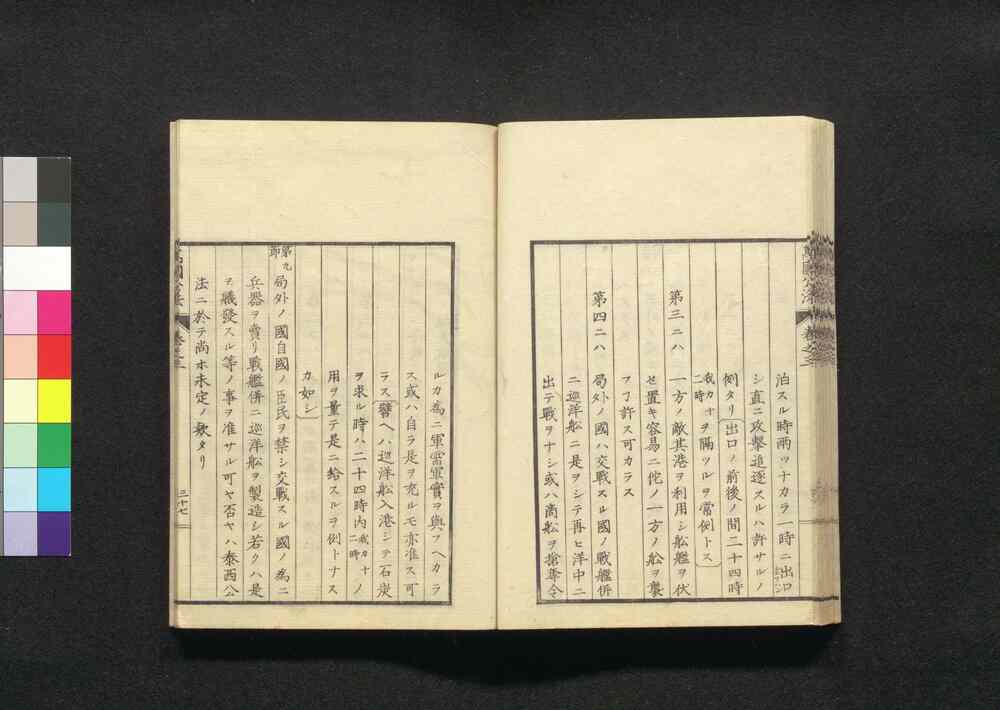 泊スル時兩ツナカラ一時ニ出口
シ直ニ攻撃追逐スルハ許サルノ
例タリ出口ノ前後ノ間二十四時
我カ十二時ヲ隔ツルヲ常例トス
第三ニハ
一方ノ敵其港ヲ利用シ船艦ヲ伏
セ置キ容易ニ佗ノ一方ノ船ヲ襲
フヿ許ス可カラス
第四ニハ
局外ノ國ハ交戰スル國ノ戰艦併
ニ巡洋船ニ是ヲシテ再ヒ洋中ニ
出テ戰ヲナシ或ハ商船ヲ搶奪令
ルカ為ニ軍需軍實ヲ與フヘカラ
ス或ハ自ラ是ヲ充ルモ亦准ス可
ラス譬ヘハ巡洋船入港シテ石炭
ヲ求ル時ハ二十四時内我カ十二時ノ
用ヲ量テ是ニ給スルヲ例トナス
カ如シ
第九節
局外ノ國自國ノ臣民ヲ禁シ交戰スル國ノ為ニ
兵器ヲ賣リ戰艦併ニ巡洋船ヲ製造シ若クハ是
ヲ艤發スル等ノ事ヲ准サル可ヤ否ヤハ泰西公
法ニ於テ尚ホ未定ノ數タリ
萬國公法
卷之三
三十七